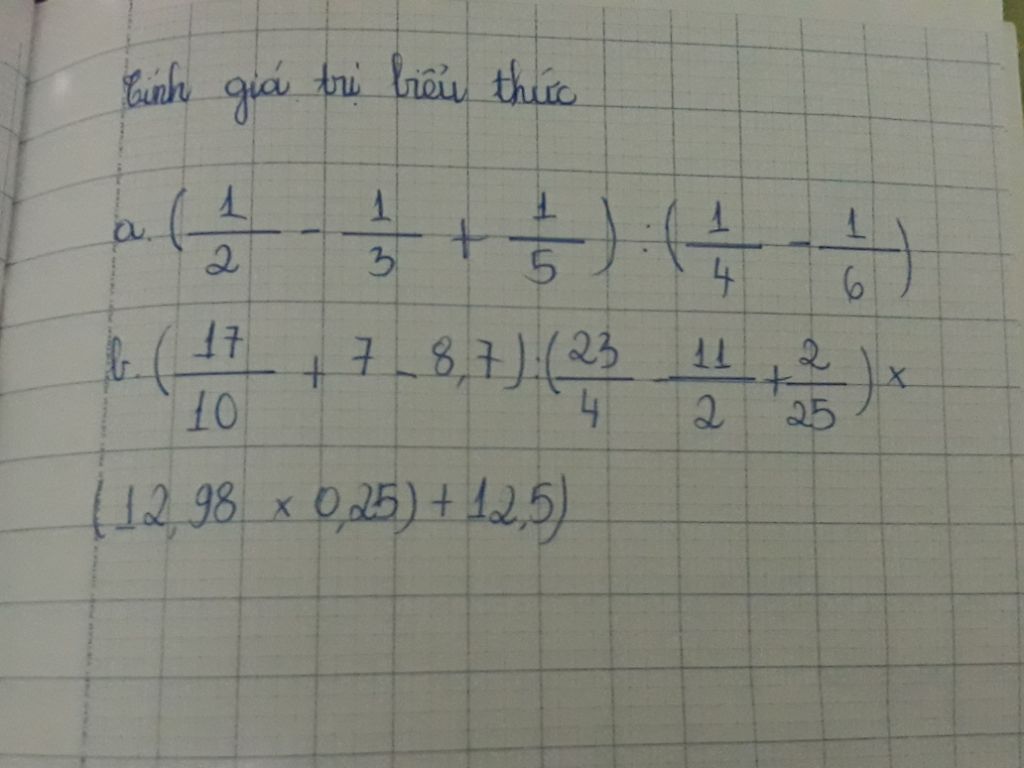 Tính giá trị biểu thức
a. (1/2 - 1/3 + 1/5) : (1/4 - 1/6)
b. (17/10 + 7 - 8,7) : (23/4 - 11/2 + 2/25) x
(12,98 x 0,25) + 12,5)